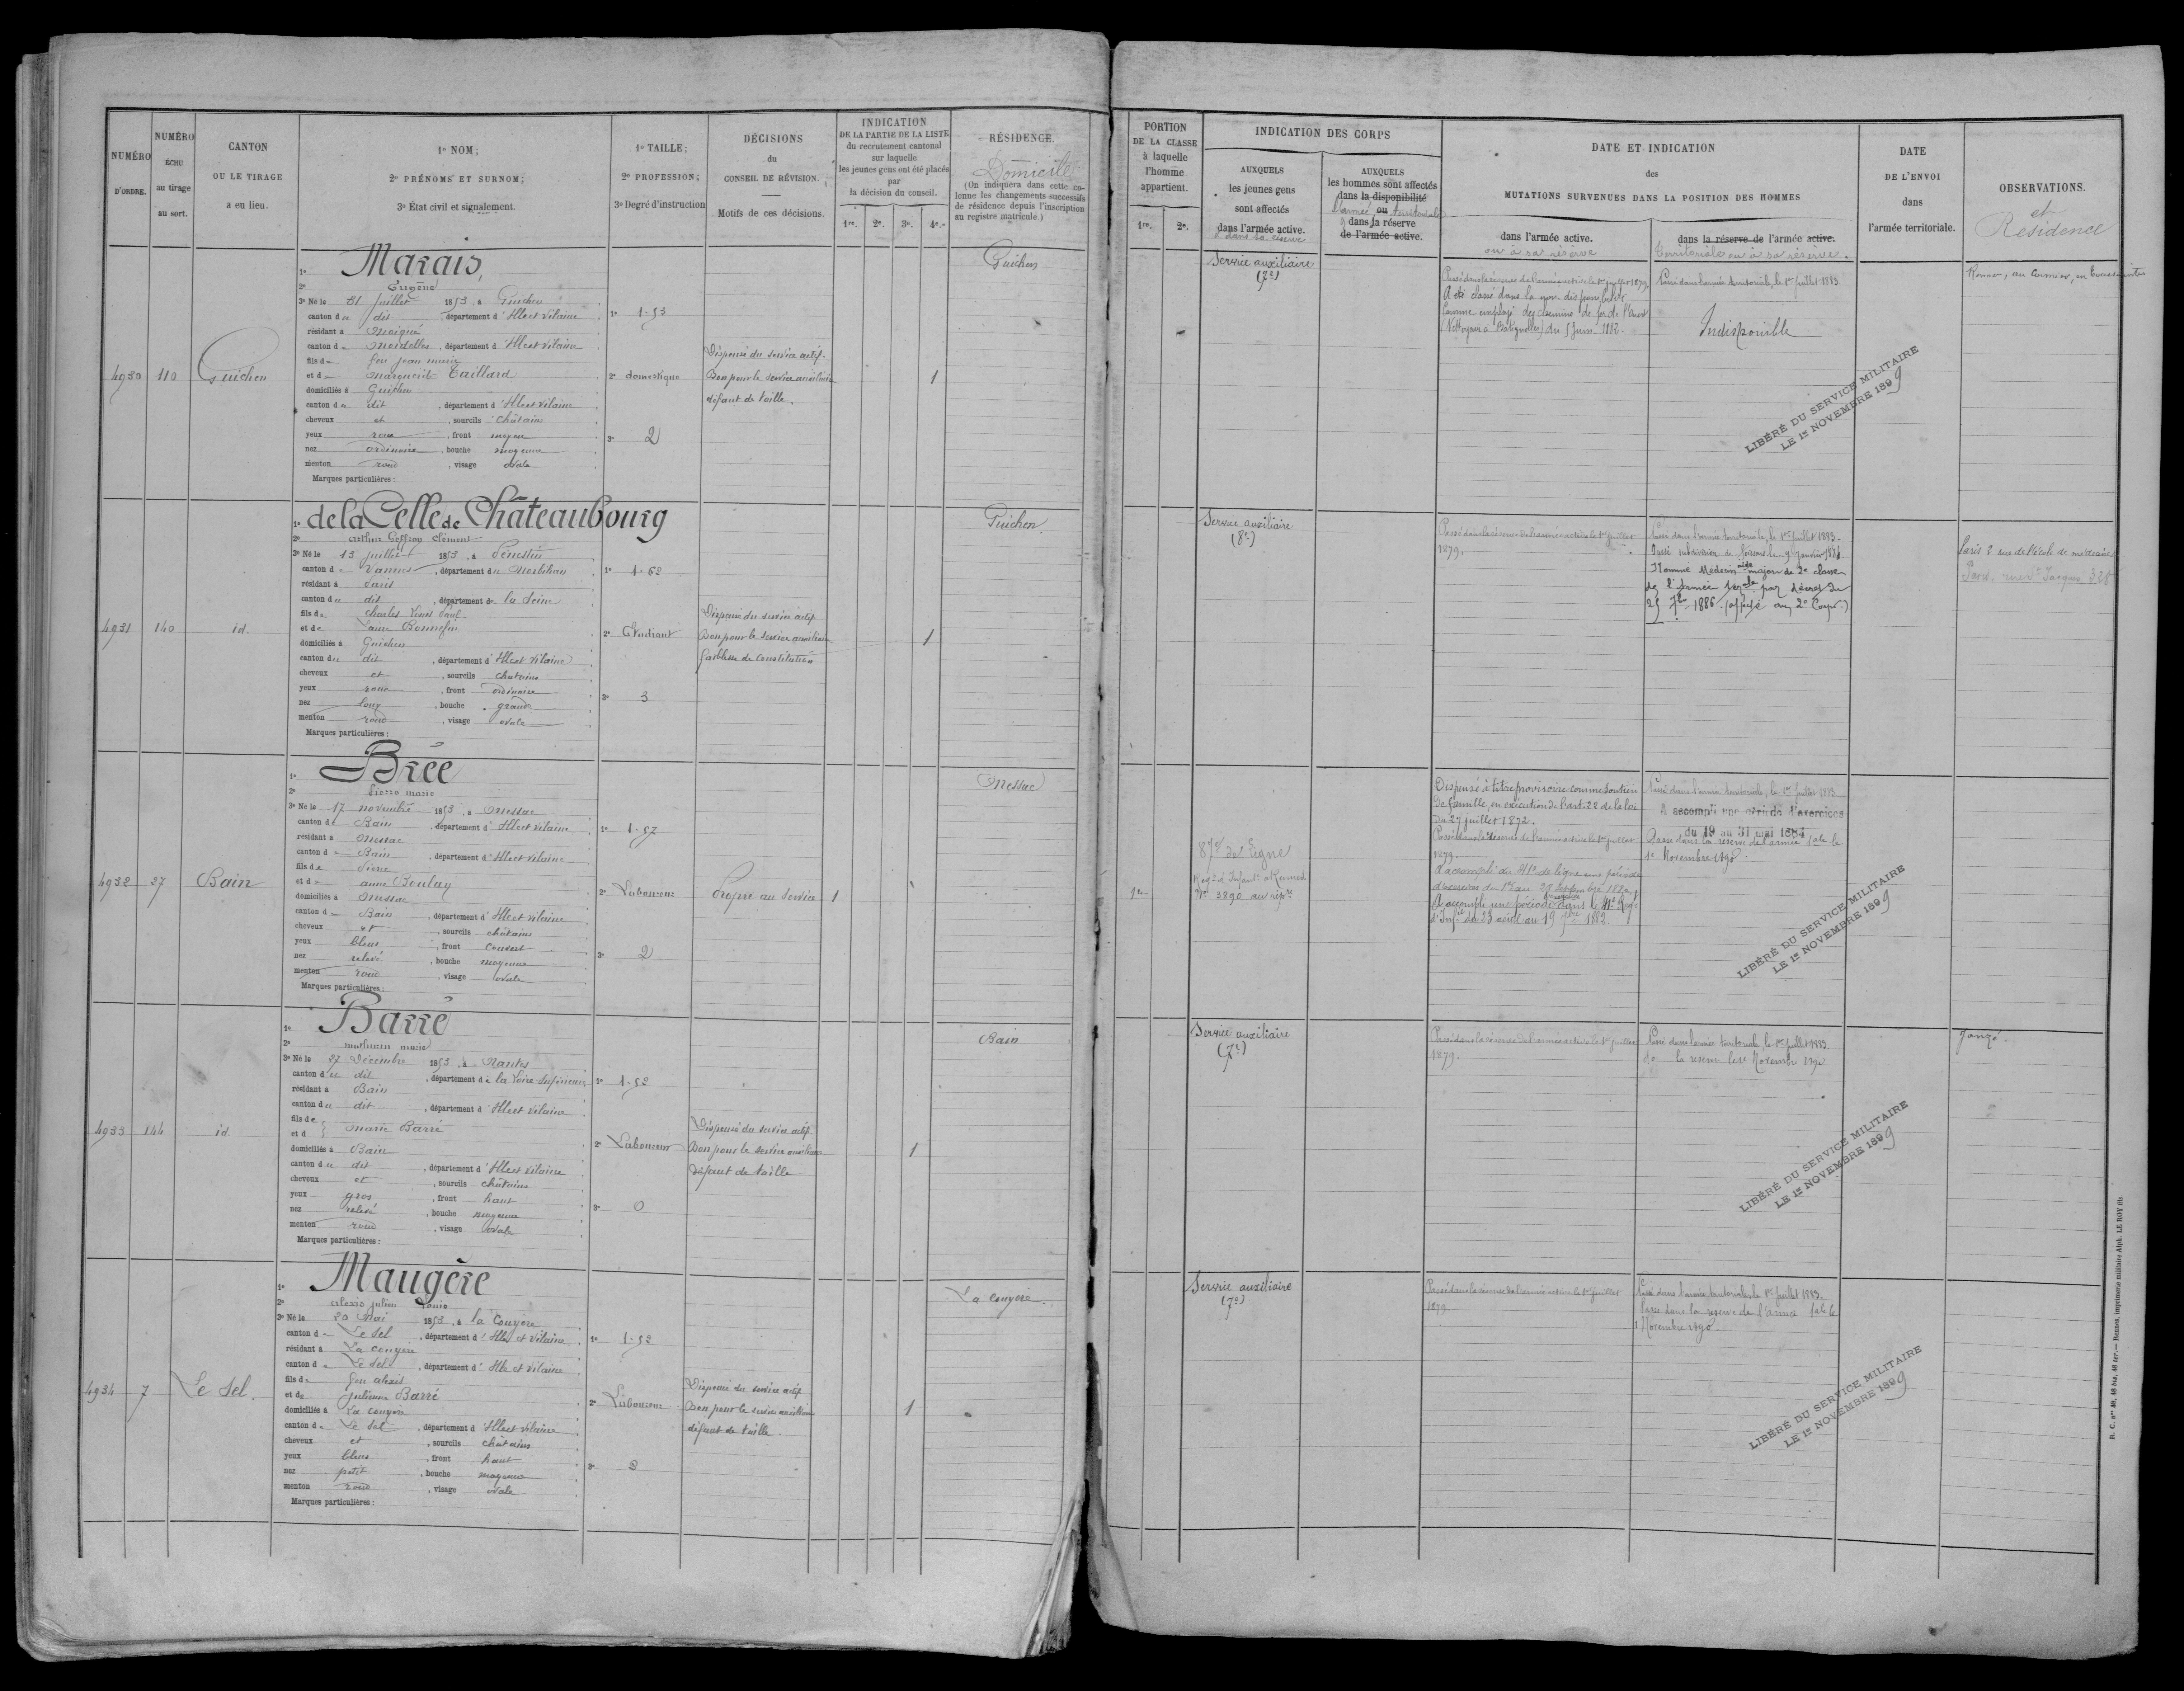 NUMÉRO
D'ORDRE.
NUMÉRO
ÉCHU
au tirage
au sort.
CANTON
OU LE TIRAGE
a eu lieu.
1º NOM;
2º PRÉNOMS ET SURNOM;
3º État civil et signalement.
1º TAILLE;
2º PROFESSION;
3º Degré d'instruction
DÉCISIONS
du
CONSEIL DE RÉVISION.
Motifs de ces décisions.
INDICATION
DE LA PARTIE DE LA LISTE
du recrutement cantonal
sur laquelle
les jeunes gens ont été placés
par
la décision du conseil.
1re. 2e. 3e. 4e.
RÉSIDENCE.
Domicile
(On indiquera dans cette co-
lonne les changements successifs
de résidence depuis l'inscription
au registre matricule.)
PORTION
DE LA CLASSE
à laquelle
l'homme
appartient.
1re. 2e.
INDICATION DES CORPS
AUXQUELS
les jeunes gens
sont affectés
dans l'armée active.
& dans sa réserve
AUXQUELS
les hommes sont affectés
dans la disponibilité
l'armée ou territoriale
& dans la réserve
de l'armée active.
DATE ET INDICATION
des
MUTATIONS SURVENUES DANS LA POSITION DES HOMMES
dans l'armée active.
ou à sa réserve
dans la réserve de l'armée active.
territoriale ou à sa réserve.
DATE
DE L'ENVOI
dans
l'armée territoriale.
OBSERVATIONS.
et
Résidence
4930
110
Guichen
1º Marais,
2º Eugène
3º Né le 31 juillet 1853, à Guichen
canton du dit, département d'Ille et Vilaine
résidant à Moigné
canton de Mordelles, département d'Ille et Vilaine
fils de feu Jean Marie
et de Marguerite Taillard
domiciliés à Guichen
canton du dit, département d'Ille et Vilaine
cheveux et, sourcils châtains
yeux roux, front moyen
nez ordinaire, bouche moyenne
menton rond, visage ovale
Marques particulières:
1º 1-53
2º domestique
3º 2
Dispensé du service actif.
Bon pour le service auxiliaire
défaut de taille.
1
Guichen
Service auxiliaire
(7e)
Passé dans la réserve de l'armée active le 1er juillet 1879.
A été classé dans la non disponibilité
comme employé des chemins de fer de l'Ouest
(Nettoyeur à Batignolles) du 5 juin 1882.
Passé dans l'armée territoriale, le 1er juillet 1883.
Indisponible
LIBÉRÉ DU SERVICE MILITAIRE
LE 1er NOVEMBRE 1899
4931
140
id.
1º de la Celle de Châteaubourg
2º Arthur Geffroy Clément
3º Né le 13 juillet 1853, à Pénestin
canton de Vannes, département du Morbihan
résidant à Paris
canton du dit, département de la Seine
fils de Charles Louis Paul
et de Laure Bonnefin
domiciliés à Guichen
canton du dit, département d'Ille et Vilaine
cheveux et, sourcils chatains
yeux roux, front ordinaire
nez long, bouche grande
menton rond, visage ovale
Marques particulières:
1º 1-62
2º Etudiant
3º 3
Dispensé du service actif.
Bon pour le service auxiliaire
faiblesse de constitution
1
Guichen
Service auxiliaire
(8e)
Passé dans la réserve de l'armée active le 1er juillet
1879.
Passé dans l'armée territoriale, le 1er juillet 1883.
Nommé Médecin aide major de 2e classe
de l'Armée terale par décret du
25 7bre 1886 (affecté au 2e Corps.)
Paris 2 rue de l'école de médecine
4932
27
Bain
1º Brée
2º Pierre Marie
3º Né le 17 novembre 1853, à Messac
canton de Bain, département d'Ille et Vilaine
résidant à Messac
canton de Bain, département d'Ille et Vilaine
fils de Pierre
et de Anne Boulay
domiciliés à Messac
canton de Bain, département d'Ille et Vilaine
cheveux et, sourcils châtains
yeux bleus, front couvert
nez relevé, bouche moyenne
menton rond, visage ovale
Marques particulières:
1º 1-57
2º Laboureur
3º 2
Propre au Service
1
Messac
1re
87e de Ligne
Nº 3890 au répre
Dispensé à titre provisoire comme soutien
de famille, en exécution de l'art. 22 de la loi
du 27 juillet 1872.
Passé dans la réserve de l'armée active le 1er juillet
1879.
A accompli au 41e de ligne une période
d'exercices du 1er au 28 Septembre 1880.
A accompli une période d'exercices dans le 41e Régt
Passé dans l'armée territoriale, le 1er juillet 1883
A accompli une période d'exercices
du 19 au 31 mai 1884
Passé dans la réserve de l'armée tale le
1er Novembre 1890.
LIBÉRÉ DU SERVICE MILITAIRE
LE 1er NOVEMBRE 1899
4933
144
id.
1º Barré
2º Mathurin Marie
3º Né le 27 Décembre 1853, à Nantes
canton du dit, département de la Loire Inférieure
résidant à Bain
canton du dit, département d'Ille et Vilaine
fils de
et d } Marie Barré
domiciliés à Bain
canton du dit, département d'Ille et Vilaine
cheveux et, sourcils châtains
yeux gros, front haut
nez relevé, bouche moyenne
menton rond, visage ovale
Marques particulières:
1º 1-52
2º Laboureur
3º 0
Dispensé du service actif.
Bon pour le service auxiliaire
Défaut de taille
1
Bain
Service auxiliaire
(7e)
Passé dans la réserve de l'armée active le 1er juillet
1879.
Passé dans l'armée territoriale le 1er juillet 1883.
do la réserve le 1er Novembre 1890
LIBÉRÉ DU SERVICE MILITAIRE
LE 1er NOVEMBRE 1899
Janzé.
4934
7
Le Sel.
1º Maugère
2º Alexis Julien Louis
3º Né le 20 Mai 1853, à la Couyère
canton de Le Sel, département d'Ille et Vilaine
résidant à La Couyère
canton de Le Sel, département d'Ille et Vilaine
fils de feu Alexis
et de Julienne Barré
domiciliés à La Couyère
canton de Le Sel, département d'Ille et Vilaine
cheveux et, sourcils châtains
yeux bleus, front haut
nez petit, bouche moyenne
menton rond, visage ovale
Marques particulières:
1º 1-52
2º Laboureur
3º 2
Dispensé du service actif
Bon pour le service auxiliaire
défaut de taille.
1
La Couyère.
Service auxiliaire
(7e)
Passé dans la réserve de l'armée active le 1er juillet
1879
Passé dans l'armée territoriale, le 1er juillet 1883.
Passé dans la réserve de l'armée tale le
1er Novembre 1890.
LIBÉRÉ DU SERVICE MILITAIRE
LE 1er NOVEMBRE 1899
R. C. nos 40, 48 bis, 48 ter. — Rennes, imprimerie militaire Alph. LE ROY fils